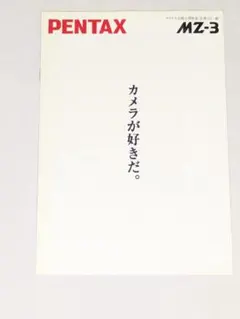 PENTAX
MZ-3
カメラが好きだ。